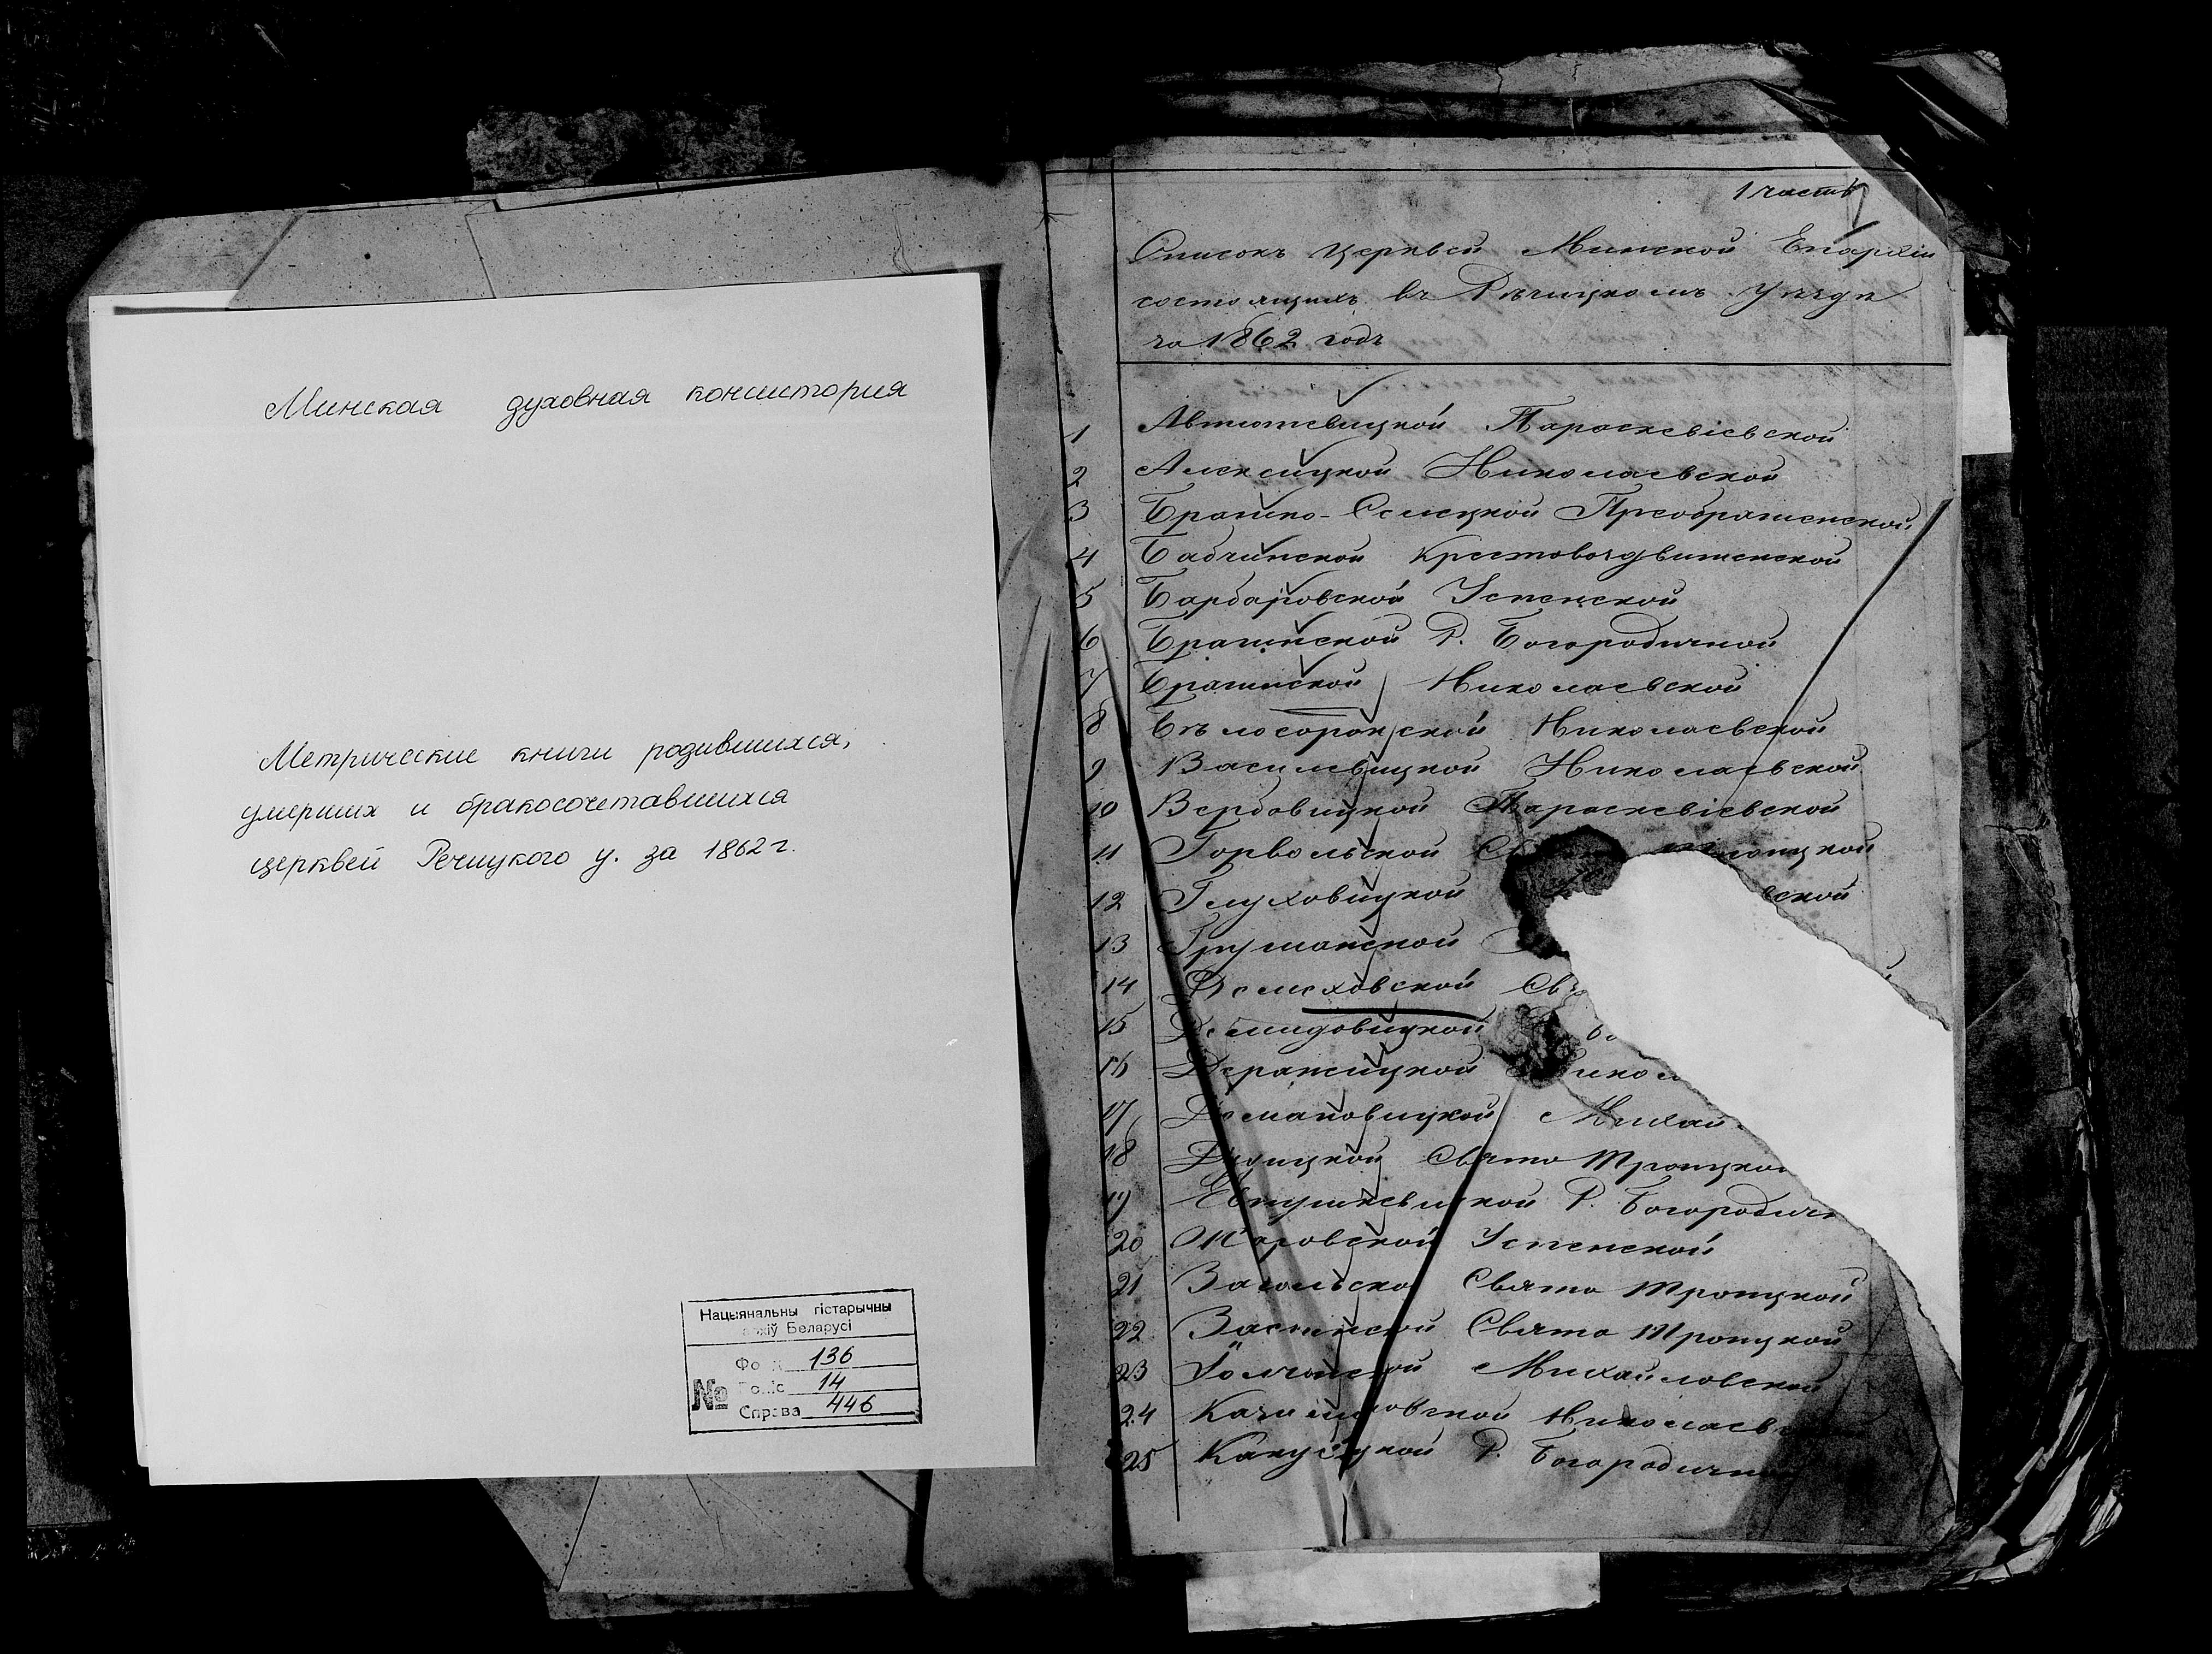 Минская духовная консистория
Метрические книги родившихся,
умерших и бракосочетавшихся
церквей Речицкого у. за 1862 г.
Нацыянальны гістарычны
архіў Беларусі
Фонд 136
Вопіс 14
№
Справа 446
1 часть
Списокъ Церквей Минской Епархіи
состоящихъ въ Рѣчицкомъ Уѣздѣ
за 1862 годъ
1 Автютевицкой Параскевіевской
2 Алексицкой Николаевской
3 Брагино-Селецкой Преображенской
4 Бабчинской Крестовоздвиженской
5 Барбаровской Успенской
6 Брагинской Р. Богородичной
7 Брагинской Николаевской
8 Бѣлосорокской Николаевской
9 Васильвицкой Николаевской
10 Вербовицкой Параскевіевской
11 Горвольской Троицкой
12 Глуховицкой вской
13 Грушанской
14 Демеховской Св
15 Демидовицкой
16 Деражицкой Никол
17 Домановицкой Михай
18 Свято Троицкой
19 Евтушкевицкой Р. Богородичн
20 Жаровской Успенской
21 Загольской Свято Троицкой
22 Заспенской Свято Троицкой
23 Іолчанской Михайловской
24 Николаев
25 Р. Богородичной